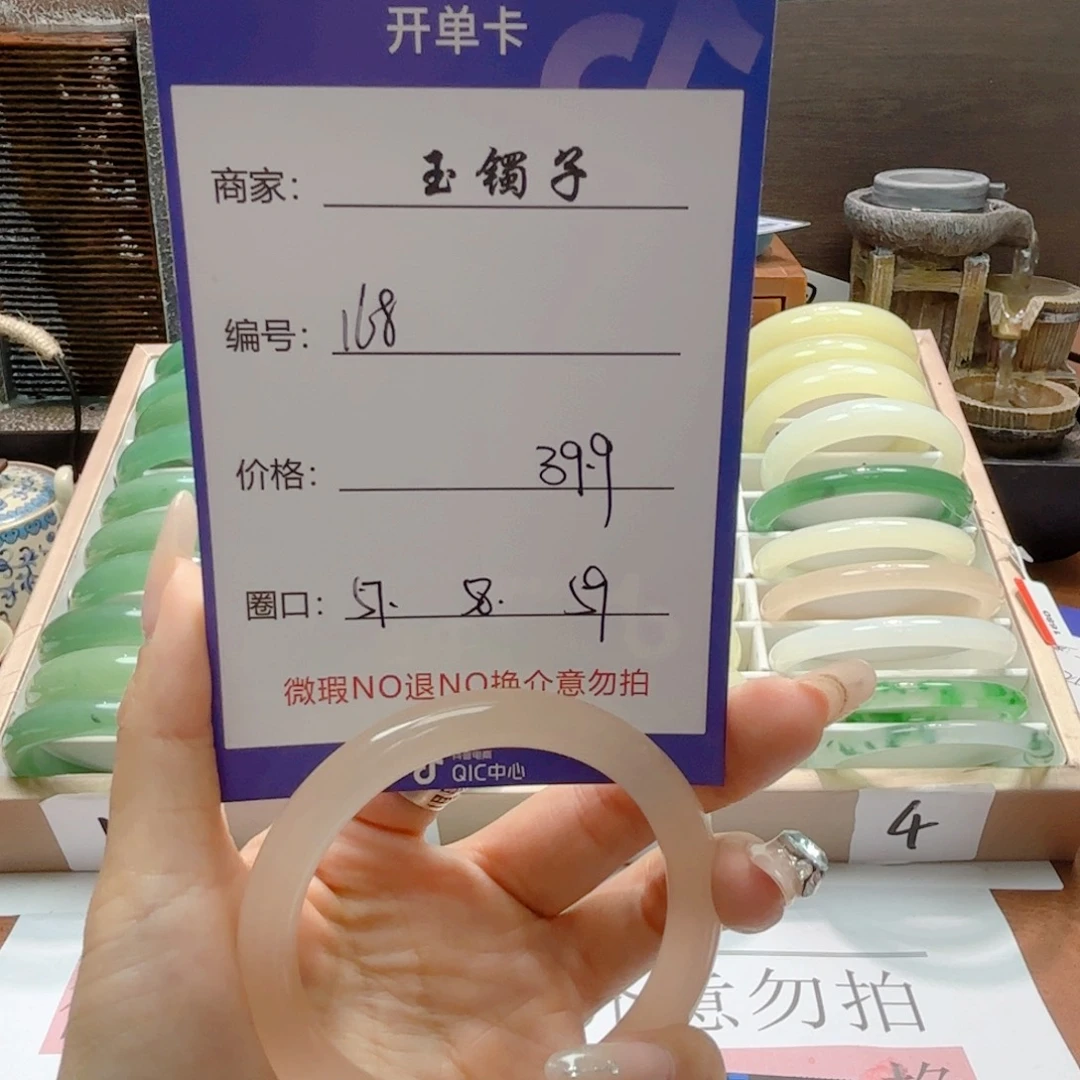 开单卡
商家: 玉镯子
编号: 168
价格: 39.9
圈口: 57. 58. 59
微瑕NO退NO换介意勿拍
抖音电商
QIC中心
1680
4
意勿拍